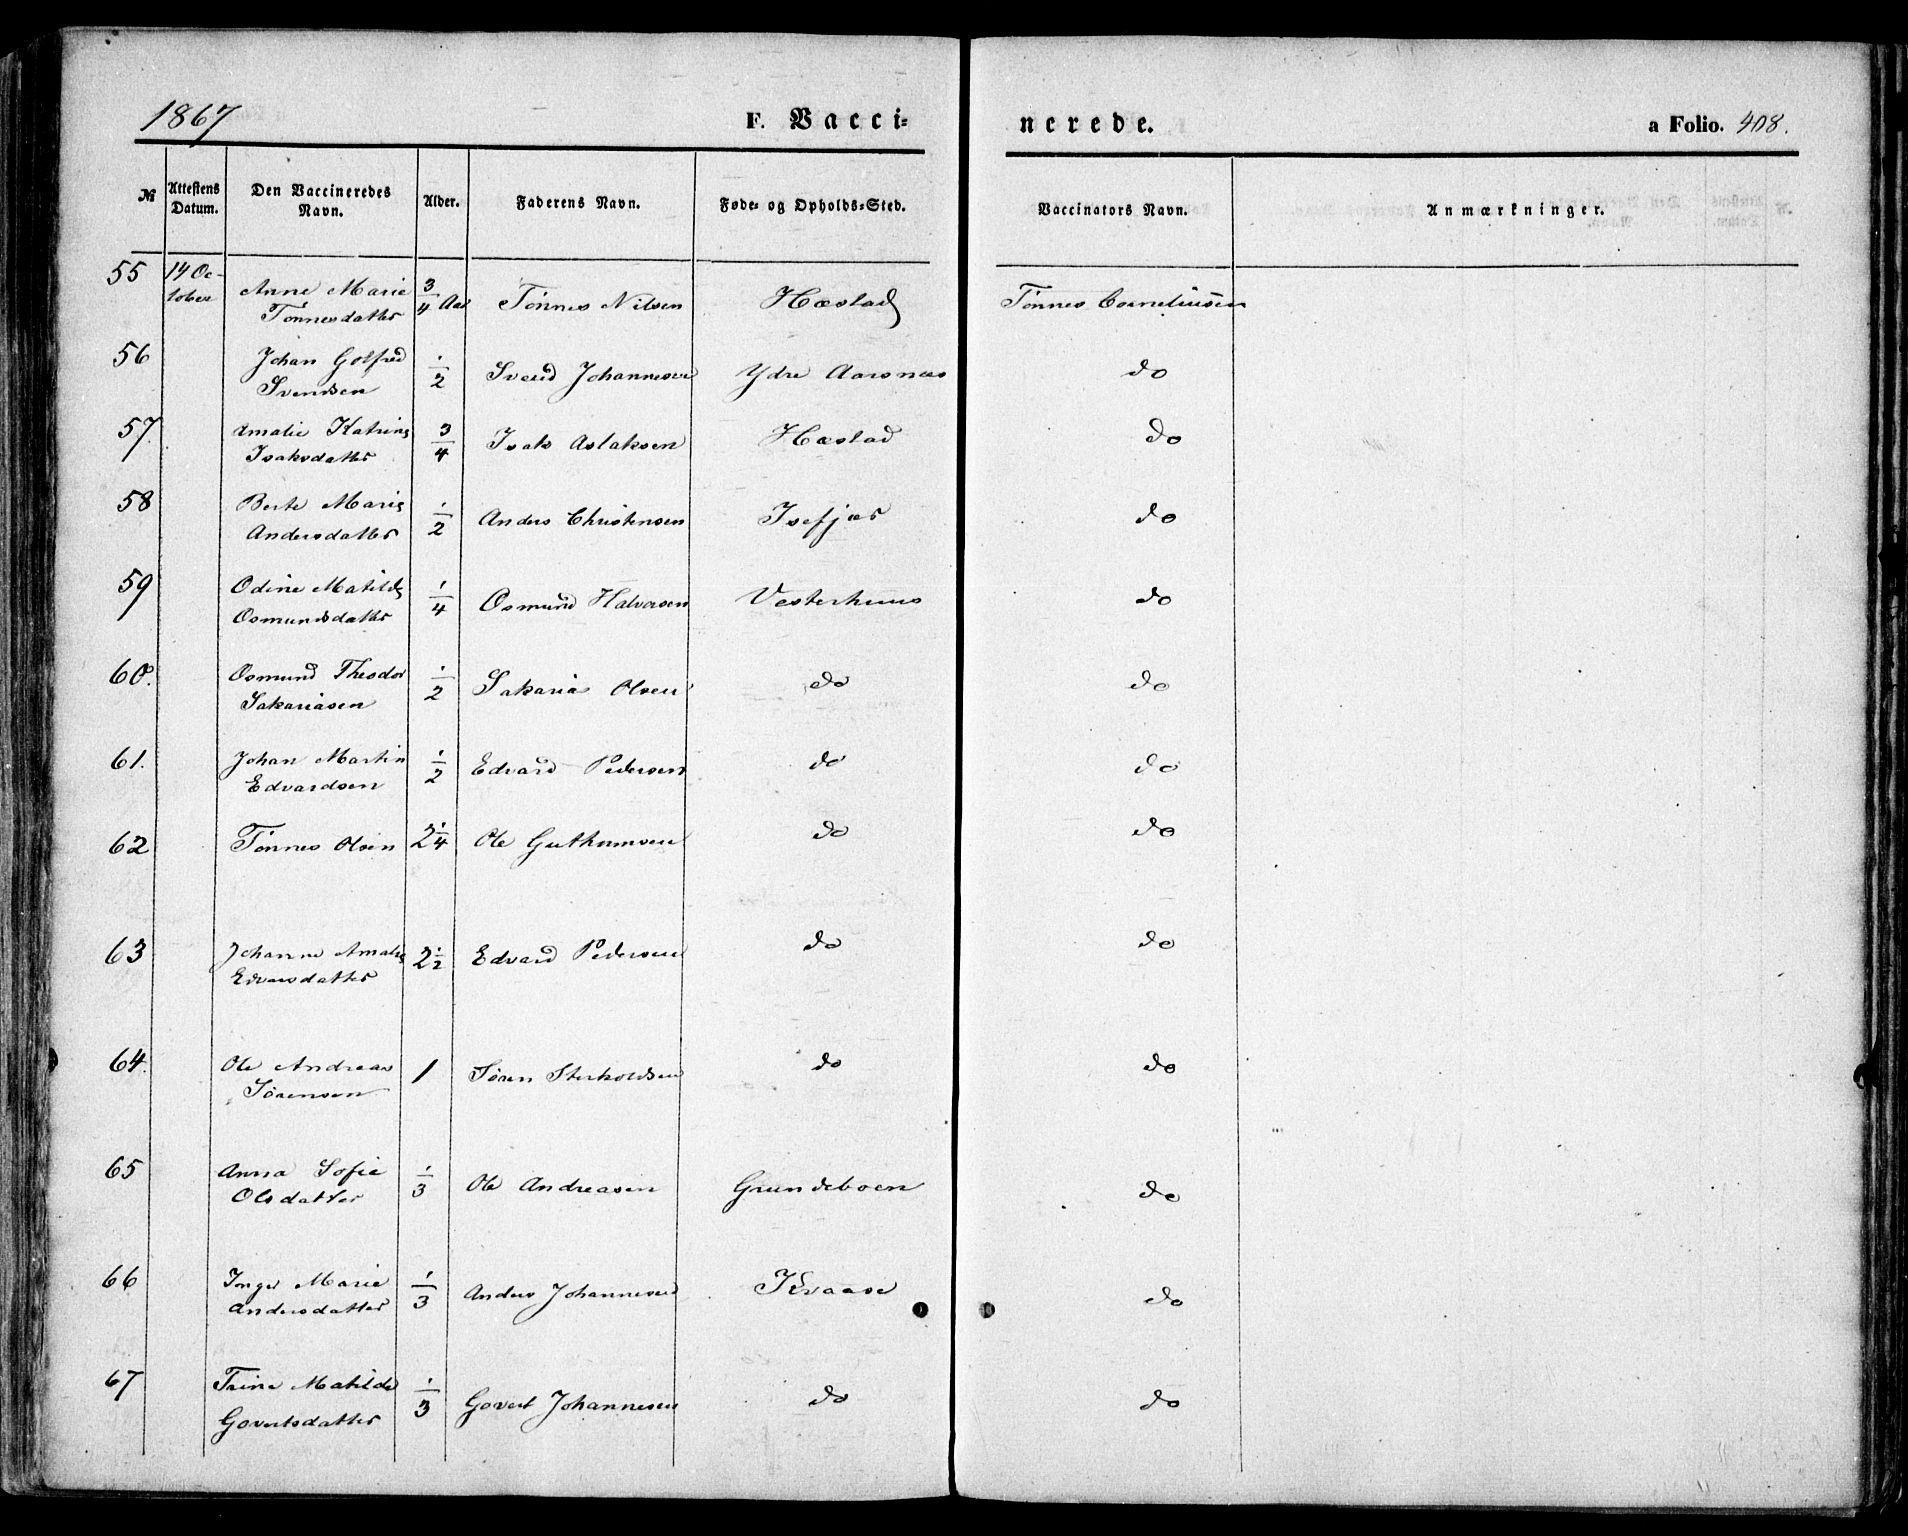 1867 F. Vacci= nerede. a Folio. 408.
№ Attestens Datum. Den Vaccineredes Navn. Alder. Faderens Navn. Føde- og Opholds-Sted. Vaccinators Navn. Anmærkninger.
55 14 Oc- Anne Marie 3/4 Aar Tönnes Nilsen Hæstad Tønnes Corneliussen
tober Tönnesdatter
56 Johan Gotfred 1/2 Svend Johannesen Ydre Aarsnes do
Svendsen
57. Amalie Katrine 3/4 Isak Aslaksen Hæstad do
Isaksdatter
58 Berte Marie 1/2 Anders Christensen Isefjær do
Andersdatter
59 Odine Matilde 1/4 Osmund Halvorsen Vesterhuus do
Osmundsdatter
60. Osmund Theodor 1/2 Sakarias Olsen do do
Sakariasen
61. Johan Martin 1/2 Edvard Pedersen do do
Edvardsen
62 Tönnes Olsen 2 1/4 Ole Guthumsen do do
63 Johanne Amalie 2 1/2 Edvard Pedersen do do
Edvarsdatter
64. Ole Andreas 1 Sören Sterkoldsen do do
Sörensen
65 Anna Sofie 1/3 Ole Andreasen Grundeboen do
Olsdatter
66 Inger Marie 1/3 Anders Johannesen Kvaase do
Andersdatter
67 Trine Matilde 1/3 Govert Johannesen do do
Govertsdatter